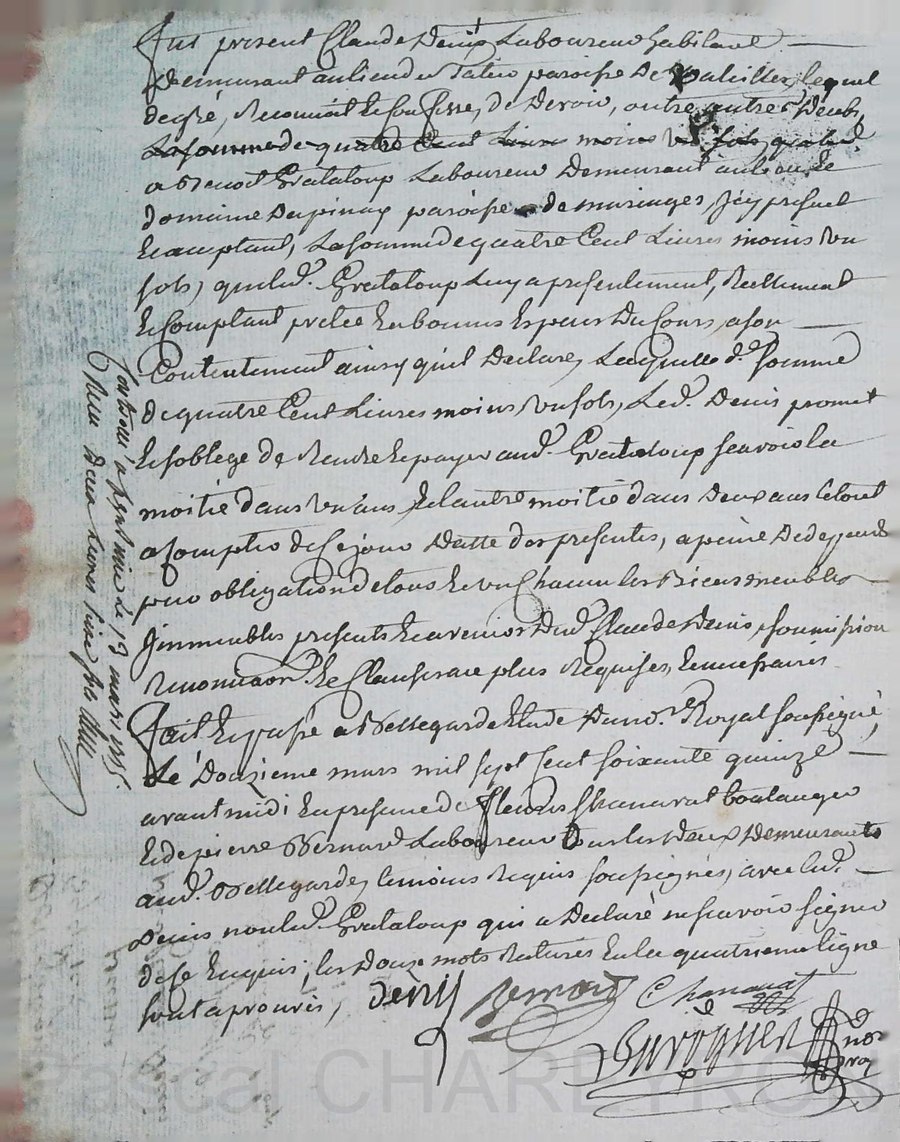 fut present Claude Denis Laboureur habitant
demeurant au lieu du paroisse De lequel
degré, Reconnoit Et Confesse, de Devoir,
La somme de quatre Cent Livres moins un sols,
a Benoit Grataloup Laboureur Demeurant au lieu Et
domaine Dupinay paroisse de maringes, Icy present
Et acceptant, La somme de quatre Cent Livres moins un
sols, que led. Grataloup Luy a presentement, Reellement
Et Comptant preté En bonnes Especes Du Cours, a son
Contentement ainsy qu'il Declare, Laquelle d. Somme
de quatre Cent Livres moins un sols, Led. Denis promet
Et soblege de Rendre Et payer aud. Grataloup scavoir la
moitié dans un ans Et lautre moitié dans Deux ans Le tout
a Compter de Ce jour Datte des presentes, a peine De depends
par obligation de tous Et un Chacun les Biens meubles
Immeubles presents Et avenir Dud. Claude Denis, soumission
Renonciaon. Et Clauses au plus Requises, Et necessaires
Fait Et passé a Bellegarde Etude Du no.re Royal soussigné,
Le Douzieme mars mil sept Cent soixante quinze
avant midi En presence de fleury Chanavat boulanger
Et de pierre Bernard Laboureur Tous les Deux Demeurants
aud. Bellegarde, temoins Requis soussignés, avec led.
Denis non led. Grataloup qui a Declaré ne scavoir signer
de Ce Enquis; les Douze mots Raturés En la quatrieme ligne
sont aprouvés,
denis Bernard Chanavat
no.re
roy
Controllé a le 13 mars 1775.
Recu Deux Livres
Pascal CHARLEYRON